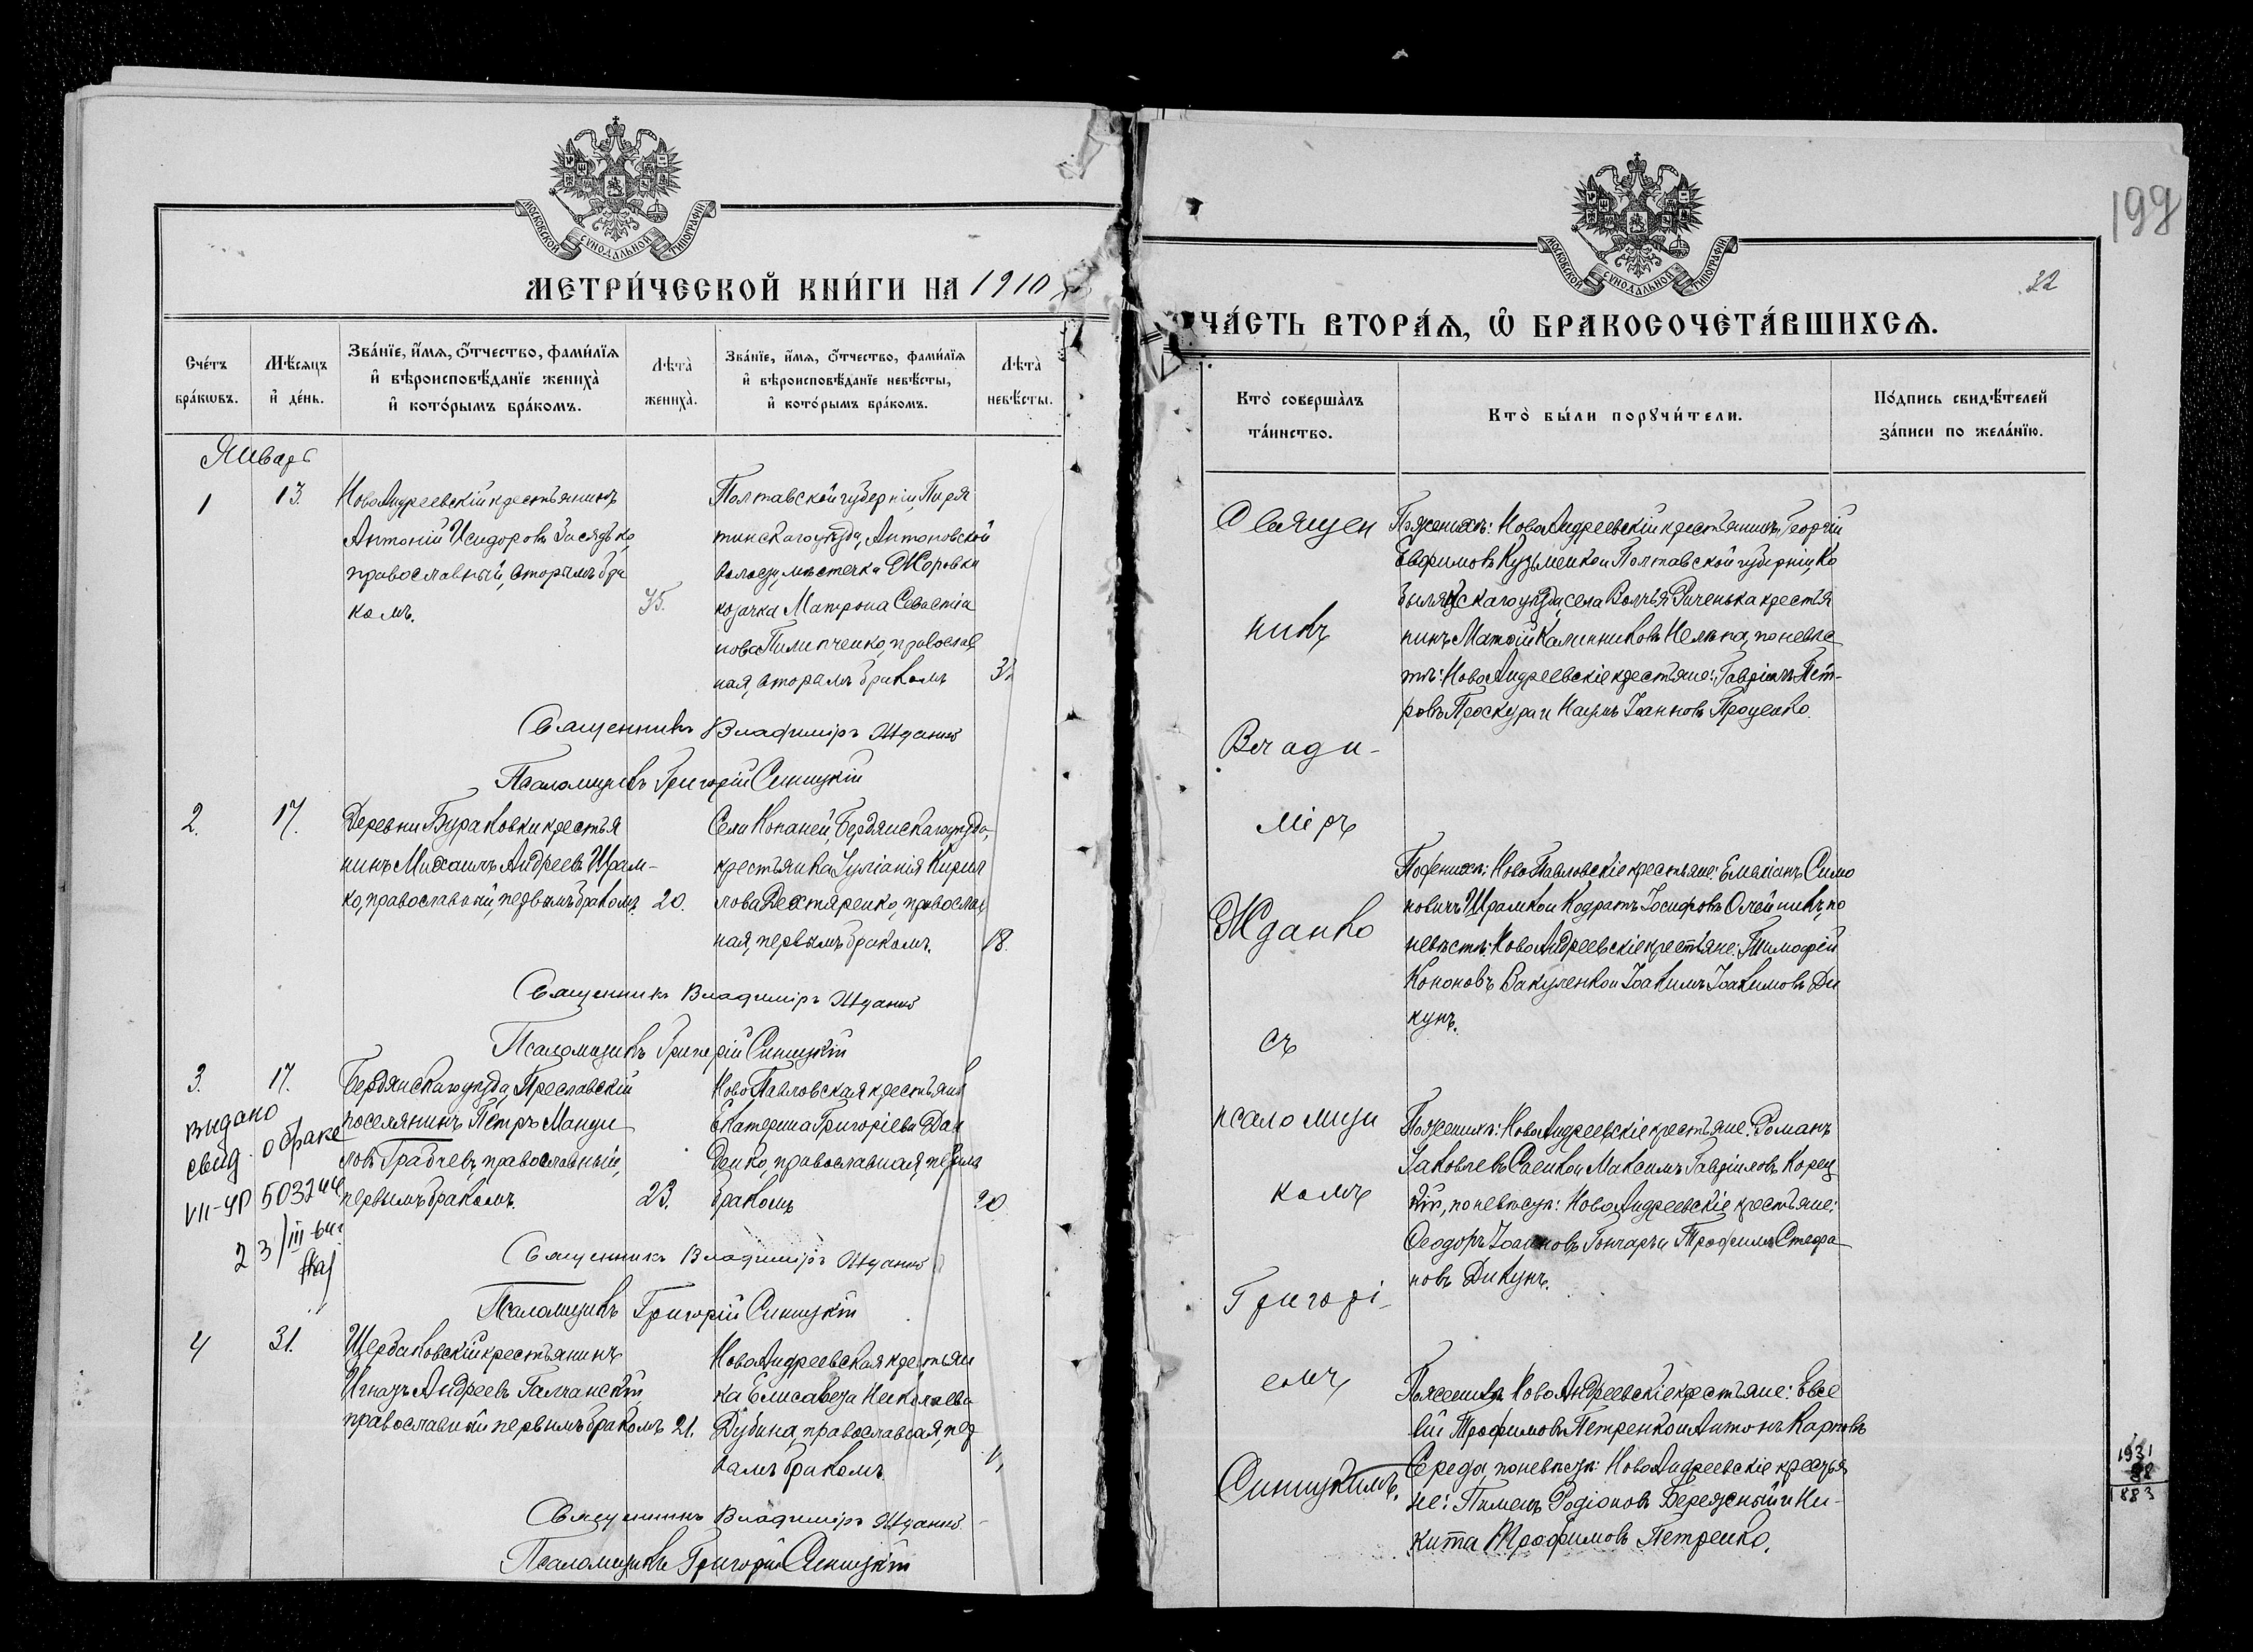 МОСКОВСКОЙ СѴНОДАЛЬНОЙ ТИПОГРАФІИ
МЕТРИ́ЧЕСКОЙ КНИ́ГИ НА 1910
Сче́тъ бра́кѡвъ.
Мѣ́сяцъ и҆ де́нь.
Зва́нїе, и҆́мѧ, ѻ҆́тчество, фами́лїѧ
и҆ вѣроисповѣ́данїе жениха̀
и҆ кото́рымъ бра́комъ.
Лѣта̀ жениха̀.
Зва́нїе, и҆́мѧ, ѻ҆́тчество, фами́лїѧ
и҆ вѣроисповѣ́данїе невѣ́сты,
и҆ кото́рымъ бра́комъ.
Лѣта̀ невѣ́сты.
Январь
1
13.
НовоАндреевскій крестьянинъ
Антоній Исидоровъ Засядько,
православный, вторымъ бра
комъ.
35.
Полтавской губерніи, Пиря
тинскаго уѣзда, Антоновской
волости, мѣстечка Жоровки
козачка Матрона Севастіа
нова Пилипченко, православ
ная, вторымъ бракомъ
Священникъ Владиміръ Жданко
Псаломщикъ Григорій Синицкій
2.
17.
Деревни Бураковки крестья
нинъ Михаилъ Андреевъ Шрам-
ко, православный, первымъ бракомъ.
20.
Села Копаней, Бердянскаго уѣзда,
крестьянка Іуліанія Кирил
лова Дехтяренко, православ
ная, первымъ бракомъ.
18.
Священникъ Владиміръ Жданко
Псаломщикъ Григорій Синицкій
3.
17.
выдано
свид. о браке
VII-ЧР 503244
23/III-64г
Бердянскаго уѣзда, Преславскій
поселянинъ Петръ Мануи
ловъ Грабчевъ, православный,
первымъ бракомъ.
23.
НовоПавловская крестьянк
Екатерина Григоріева Дан
ченко, православная, первымъ
бракомъ
20
Священникъ Владиміръ Жданко
Псаломщикъ Григорій Синицкій
4
31.
Щербаковскій крестьянинъ
Игнатъ Андреевъ Галчанскій,
православный первымъ бракомъ
21.
НовоАндреевская крестьян
ка Елисавета Николаева
Дубина, православная, пер
вымъ бракомъ
Священникъ Владиміръ Жданко
Псаломщикъ Григорій Синицкій
199
32
МОСКОВСКОЙ СѴНОДАЛЬНОЙ ТИПОГРАФІИ
ЧА́СТЬ ВТОРА́Ѧ, Ѽ БРАКОСОЧЕТА́ВШИХСѦ.
Кто̀ соверша́лъ
та́инство.
Кто̀ бы́ли порꙋчи́тели.
По́дпись свидѣ́телей
за́писи по жела́нїю.
Священ
никъ
Влади-
міръ
Жданко
съ
псаломщи
комъ
Григорі-
емъ
Синицкимъ.
По женихѣ: НовоАндреевскій крестьянинъ Георгій
Евфимовъ Кузьменко и Полтавской губерніи, Ко
белякскаго уѣзда, села Волчья Риченька крестья
нинъ Матфій Калинниковъ Нелѣпа, по невѣс
тѣ: НовоАндреевскіе крестьяне: Гавріилъ Пет-
ровъ Проскура и Наумъ Іоанновъ Проценко.
По женихѣ: НовоПавловскіе крестьяне: Емеліанъ Симо
новичъ Шрамко и Кодратъ Іосифовъ Олейникъ, по
невѣстѣ: НовоАндреевскіе крестьяне: Тимофей
Кононовъ Вакуленко и Іоакимъ Іоакимовъ Ди
кунъ.
По женихѣ: НовоАндреевскіе крестьяне: Романъ
Іаковлевъ Саенко и Максимъ Гавріиловъ Корец
кій, по невѣстѣ: НовоАндреевскіе крестьяне:
Ѳеодоръ Іоанновъ Гончаръ и Трофимъ Стефа
новъ Дикунъ.
По женихѣ: НовоАндреевскіе крестьяне: Евсе
вій Трофимовъ Петренко и Антонъ Карповъ
Середа, по невѣстѣ: НовоАндреевскіе крестья
не: Пименъ Родіоновъ Бережный и Ни-
кита Трофимовъ Петренко.
1931
1883